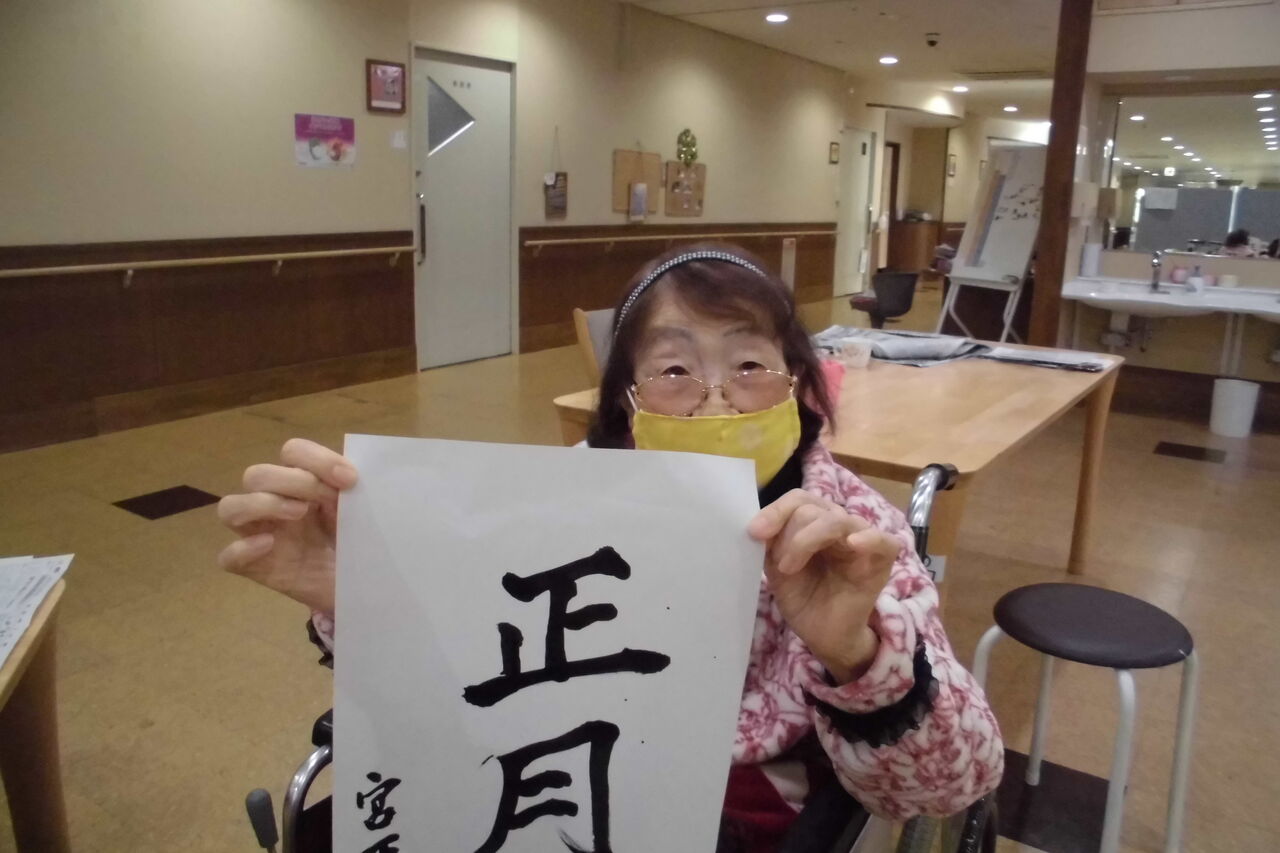 正月
宮